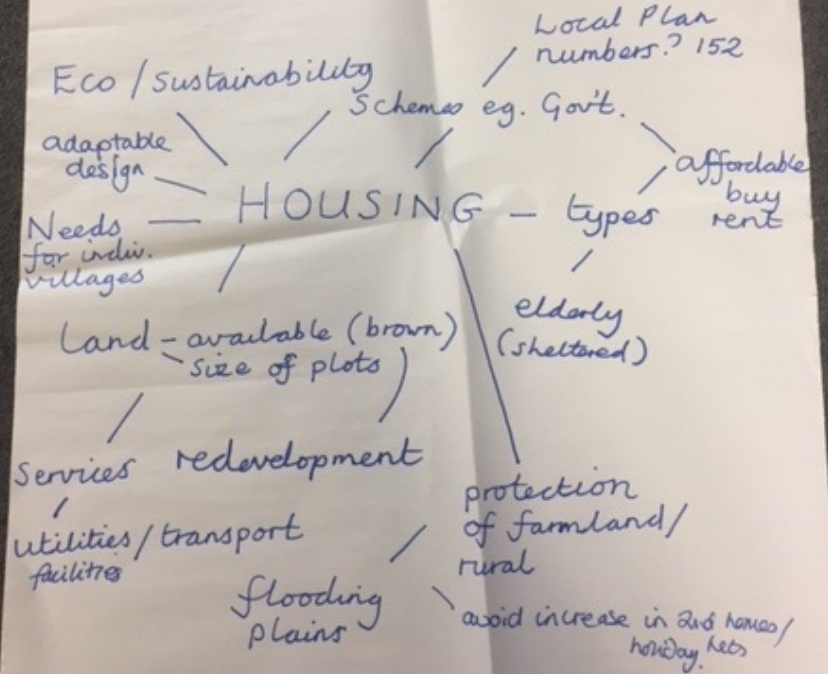 Local Plan
numbers? 152
Eco / sustainability
Schemes eg. Gov't.
adaptable
design
affordable
buy
rent
HOUSING - types
Needs
for indiv.
villages
elderly
(sheltered)
Land - available (brown)
size of plots
Services
redevelopment
utilities / transport
facilities
protection
of farmland /
rural
flooding
plains
avoid increase in 2nd homes /
holiday lets